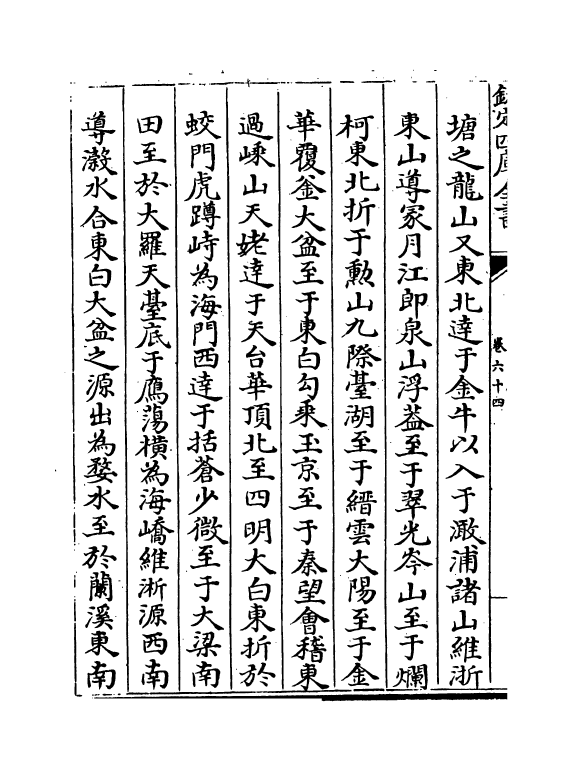 欽定四庫全書
卷六十四
塘之龍山又東北達于金牛以入于澉浦諸山維浙
東山導冢月江郎泉山浮葢至于翠光岑山至于爛
柯東北折于勲山九際臺湖至于縉雲大陽至于金
華覆釜大盆至于東白勾乘玉京至于秦望會稽東
過嵊山天姥達于天台華頂北至四明大白東折於
蛟門虎蹲峙為海門西達于括蒼少微至于大梁南
田至於大羅天臺底于鴈蕩橫為海嶠維浙源西南
導瀔水合東白大盆之源出為婺水至於蘭溪東南